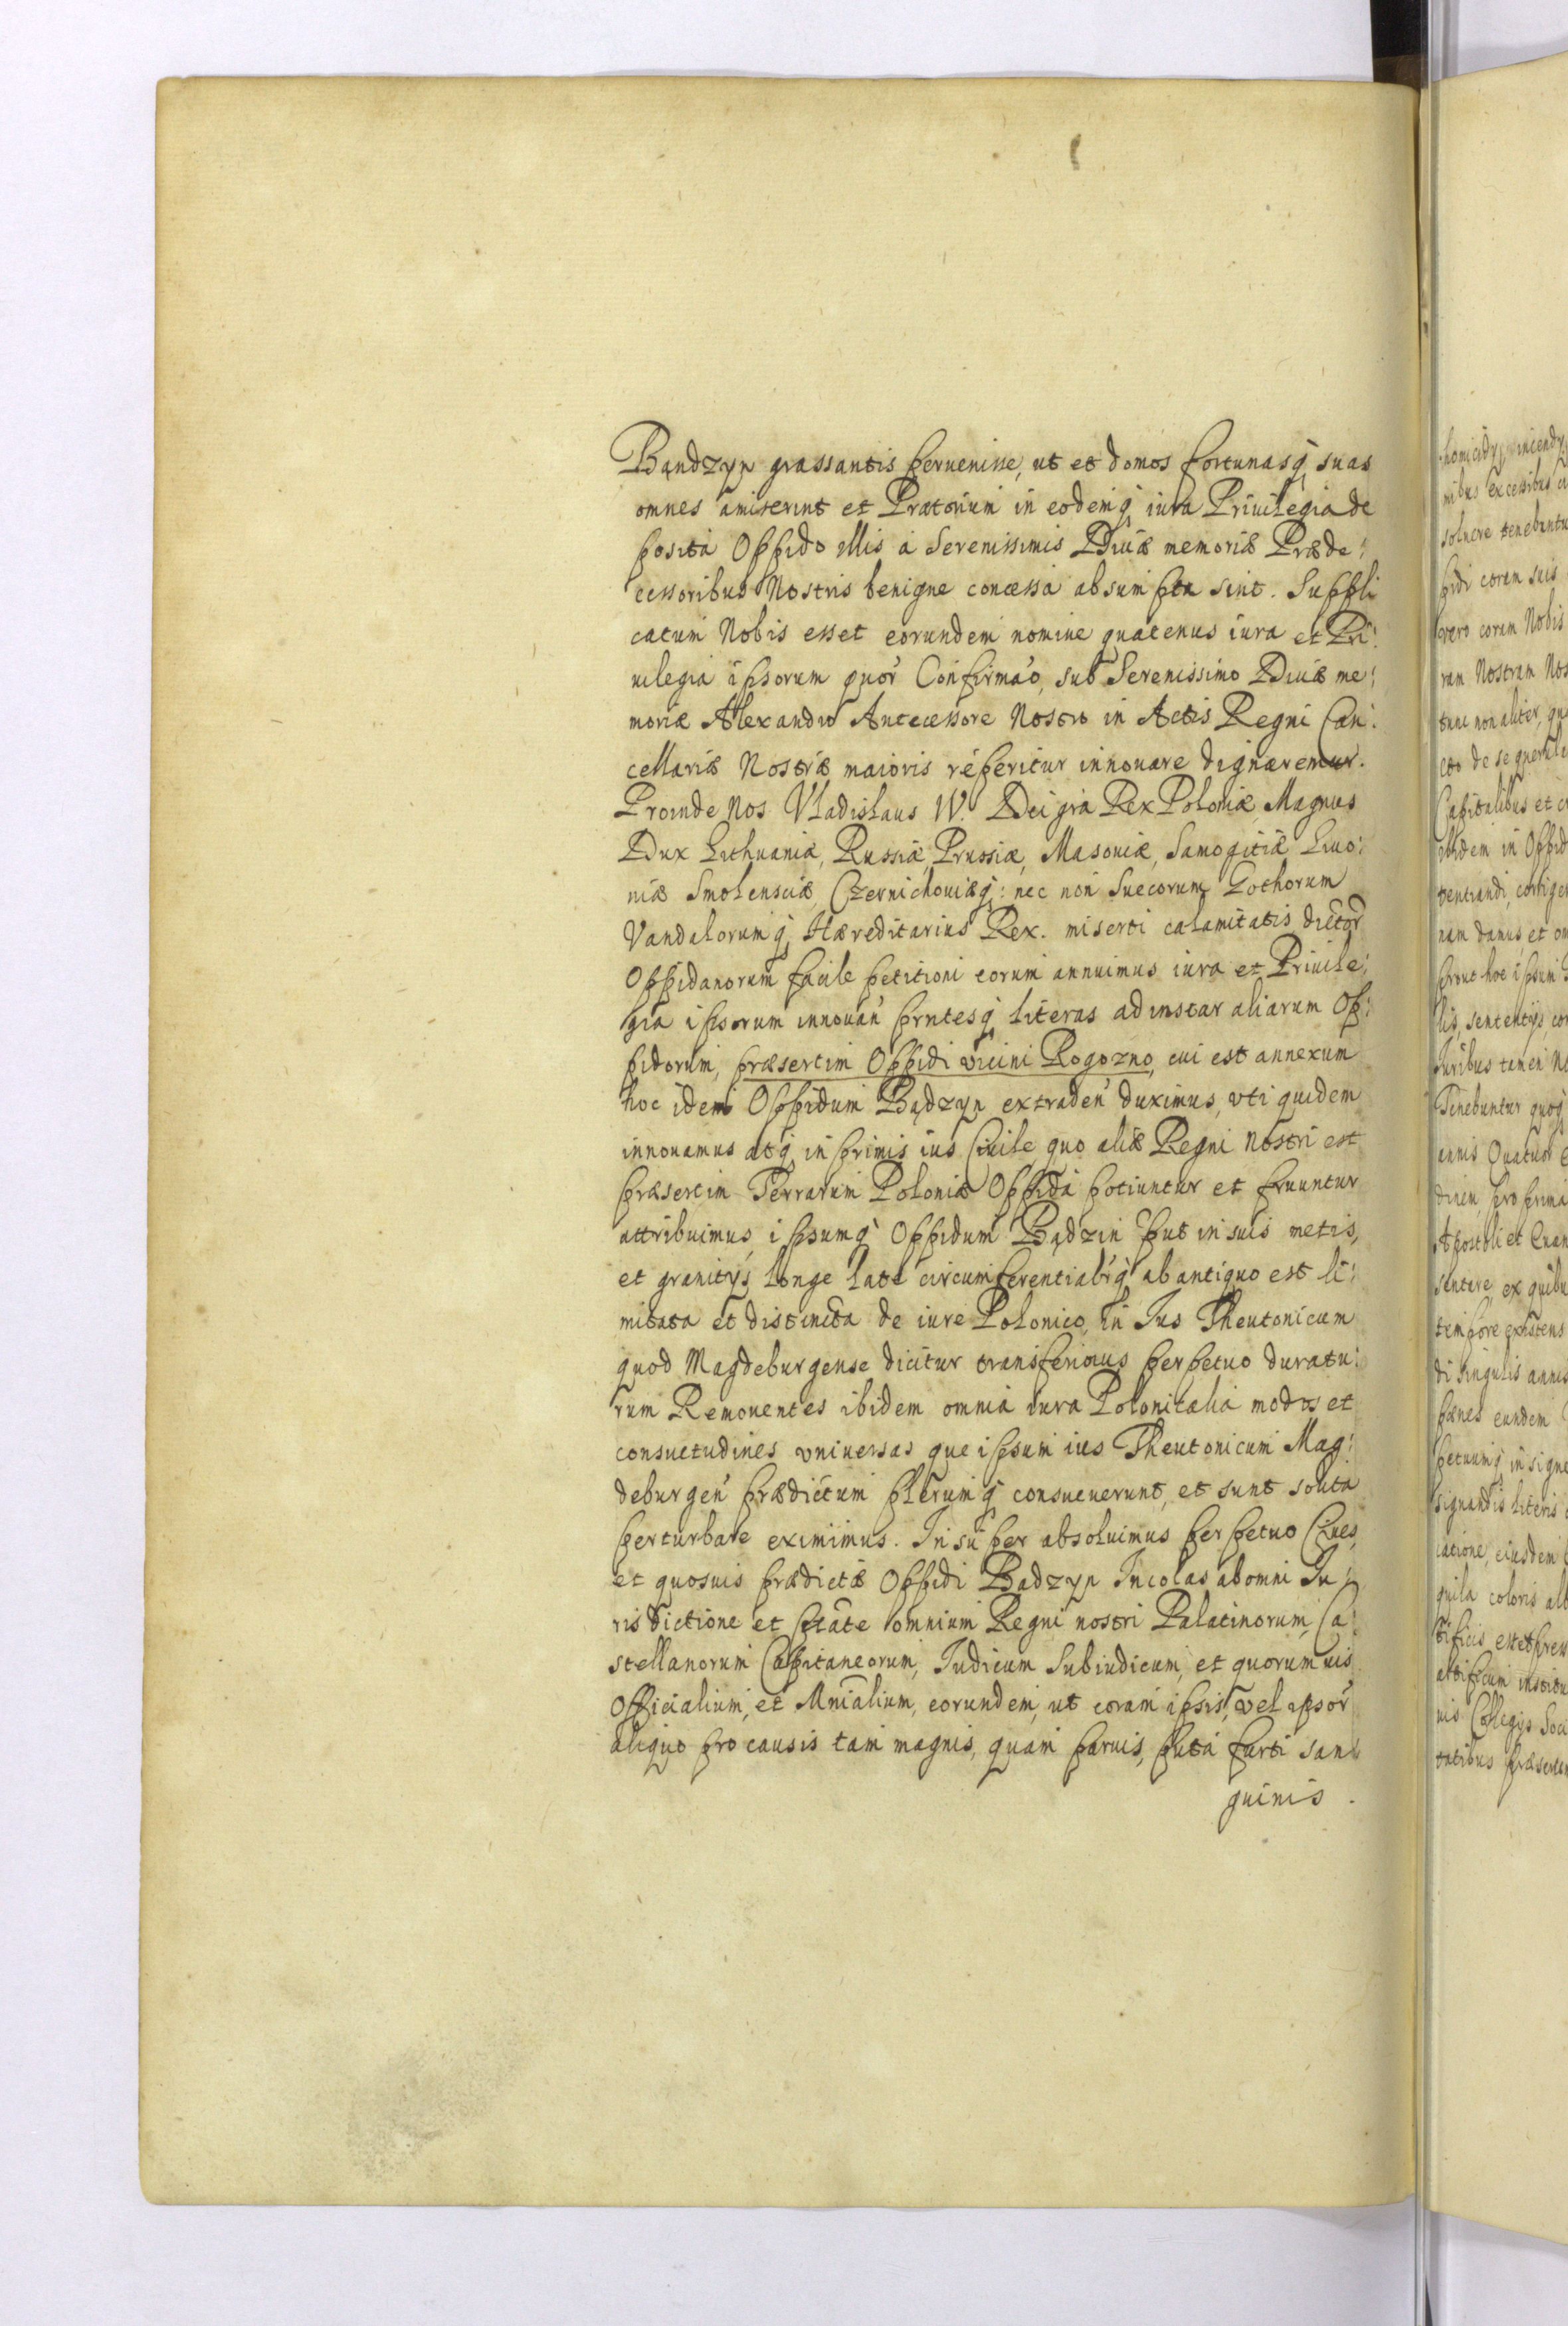 Bąndzyn grassantis peruenisse, ut et domos fortunasq suas
omnes amiserint et Pratorium in eodemq iura Priuilegia de
posita Oppido illis a Serenissimis Diuæ memoriæ Præde:
cessoribus Nostris benigne concessa absumpta sint. Suppli
catum Nobis esset eorundem nomine quatenus iura et Pri:
uilegia ipsorum quor Confirmao, sub Serenissimo Diuæ me:
moriæ Alexandro Antecessore Nostro in Actis Regni Can:
cellariæ Nostræ maioris reperitur innouare dignaremur.
Proinde Nos Vladislaus IV. Dei gra Rex Poloniæ, Magnus
Dux Lithuaniæ, Russiæ, Prussiæ, Masouiæ, Samogitiæ Liuo:
niæ Smolensciæ, Czernichouiæq: nec non Suecorum Gothorum
Vandalorumq Hæreditarius Rex. miserti calamitatis dictor
Oppidanorum facile petitioni eorum annuimus iura et Priuile:
gia ipsorum innouan prntesq literas ad instar aliarum Op:
pidorum, præsertim Oppidi vicini Rogozno, cui est annexum
hoc idem Oppidum Bądzyn extraden duximus, vti quidem
innouamus atq in primis ius Ciuile quo aliæ Regni Nostri est
præsertim Terrarum Poloniæ Oppida potiuntur et fruuntur
attribuimus, ipsumq Oppidum Bądzin put in suis metis,
et granitys longe late circumferentialrq ab antiquo est li:
mitata et distincta de iure Polonico, in Jus Theutonicum
quod Magdeburgense dicitur transferimus perpetuo duratu:
rum Remouentes ibidem omnia iura Polonitalia modos et
consuetudines vniuersas que ipsum ius Theutonicum Mag:
deburgen prædictum plerumq consueuerunt, et sunt solita
perturbare eximimus. Insuper absoluimus perpetuo Ciues,
et quosuis prædictæ Oppidi Bądzyn Incolas ab omni Ju:
ris dictione et ptate omnium Regni nostri Palatinorum, Ca:
stellanorum Capitaneorum, Judicum Subiudicum, et quorumuis
Officialium, et Mnialium, eorundem, ut coram ipsis, vel ipsor
aliquo pro causis tam magnis, quam paruis, puta furti san
guinis.
homicidy, incendy
nibus excessibus
soluere tenebuntu
pidi coram suis
vero coram Nobis
ram Nostram Nos
tunc non aliter, qu
cto de se querele
Capitalibus et c
ibidem in Oppid
tentiandi, corrige
nam damus et om
prout hoc ipsum
lis, sententys con
Juribus tamen No
Tenebuntur quoq
annis Quatuor
pro prima
Apostoli et Euan
sentare, ex quibu
tempore existens
di singulis annis
pænes eundem
petuumq insigne
signandis literis
iatione, eiusdem
quila coloris alb
tificis esset
artificum institu
nis Collegys Soci
tatibus præserta